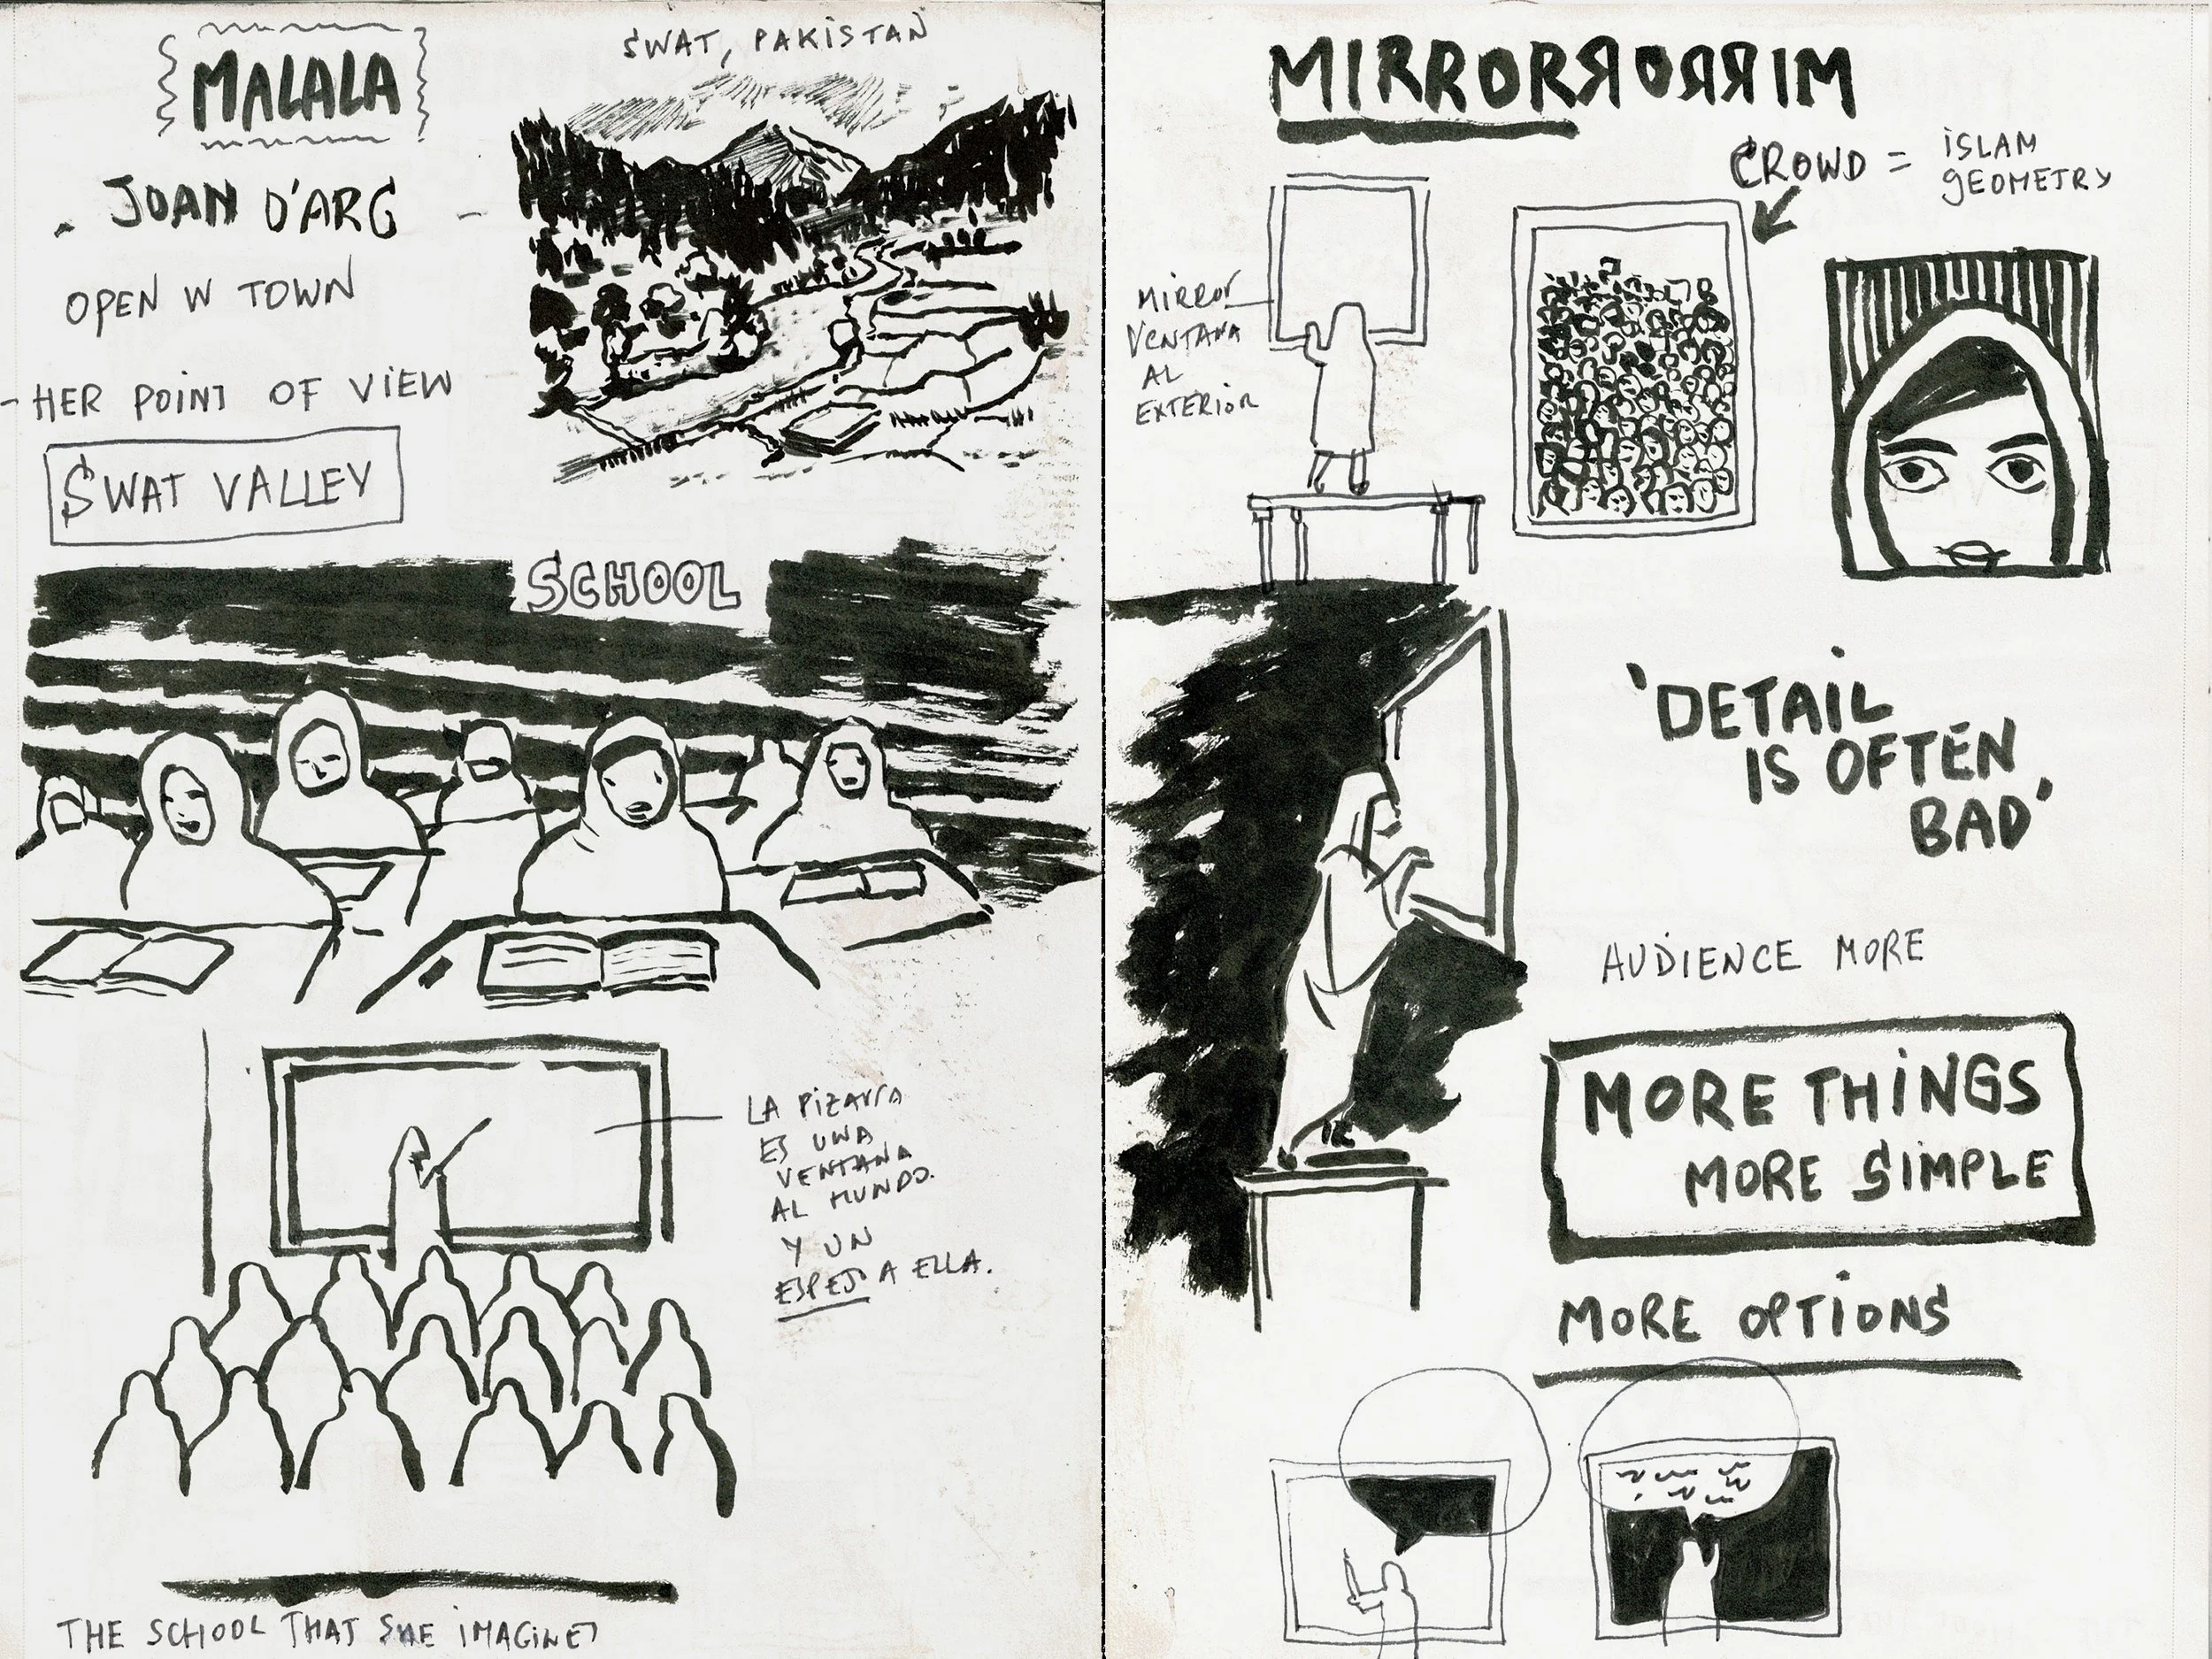 MALALA
JOAN D'ARC
OPEN W TOWN
- HER POINT OF VIEW
SWAT VALLEY
SWAT, PAKISTAN
SCHOOL
LA PIZARRA
ES UNA
VENTANA
AL MUNDO.
Y UN
ESPEJO A ELLA.
THE SCHOOL THAT SHE IMAGINET
MIRRORЯOЯЯIM
CROWD = ISLAM
GEOMETRY
MIRROR
VENTANA
AL
EXTERIOR
'DETAIL
IS OFTEN
BAD'
AUDIENCE MORE
MORE THINGS
MORE SIMPLE
MORE OPTIONS